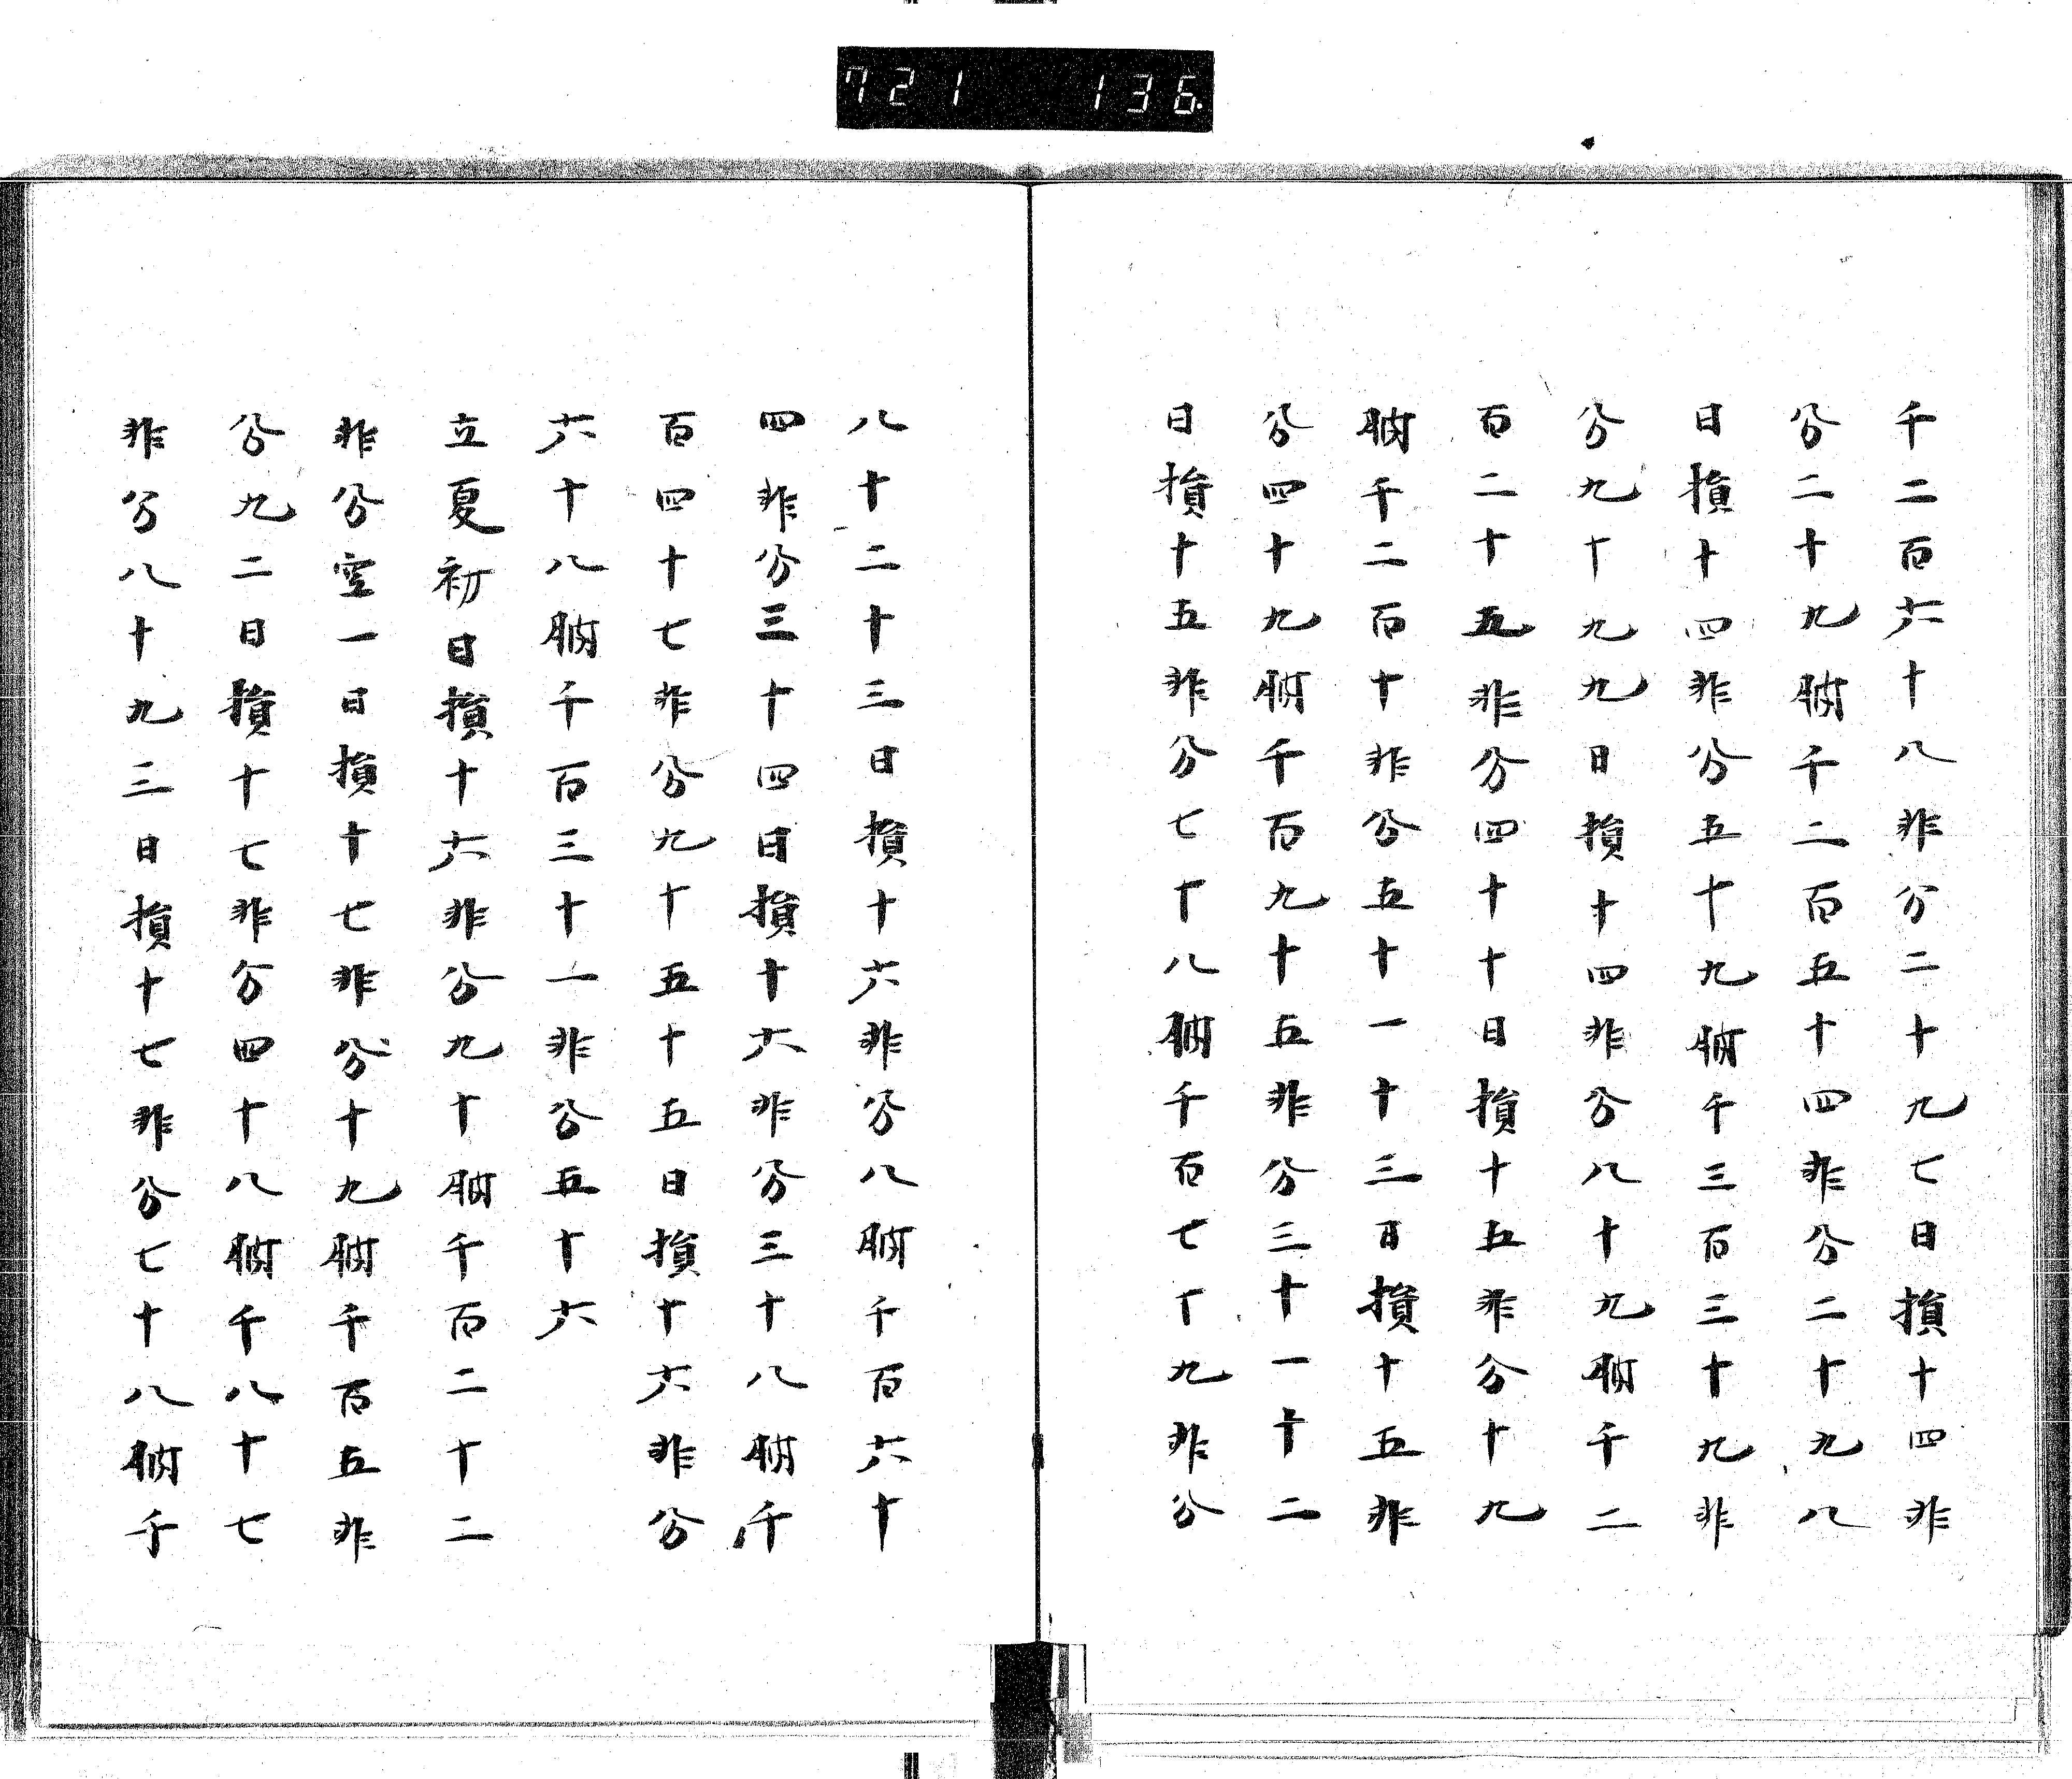 721 136.
千二百六十八非分二十九七日損十四非
分二十九朒千二百五十四非分二十九八
日損十四非分五十九朒千三百三十九非
分九十九九日損十四非分八十九朒千二
百二十五非分四十十日損十五非分十九
朒千二百十非分五十一十三日損十五非
分四十九朒千百九十五非分三十一十二
日損十五非分七十八朒千百七十九非分
八十二十三日損十六非分八朒千百六十
四非分三十四日損十六非分三十八朒千
百四十七非分九十五十五日損十六非分
六十八朒千百三十一非分五十六
立夏初日損十六非分九十朒千百二十二
非分空一日損十七非分十九朒千百五非
分九二日損十七非分四十八朒千八十七
非分八十九三日損十七非分七十八朒千